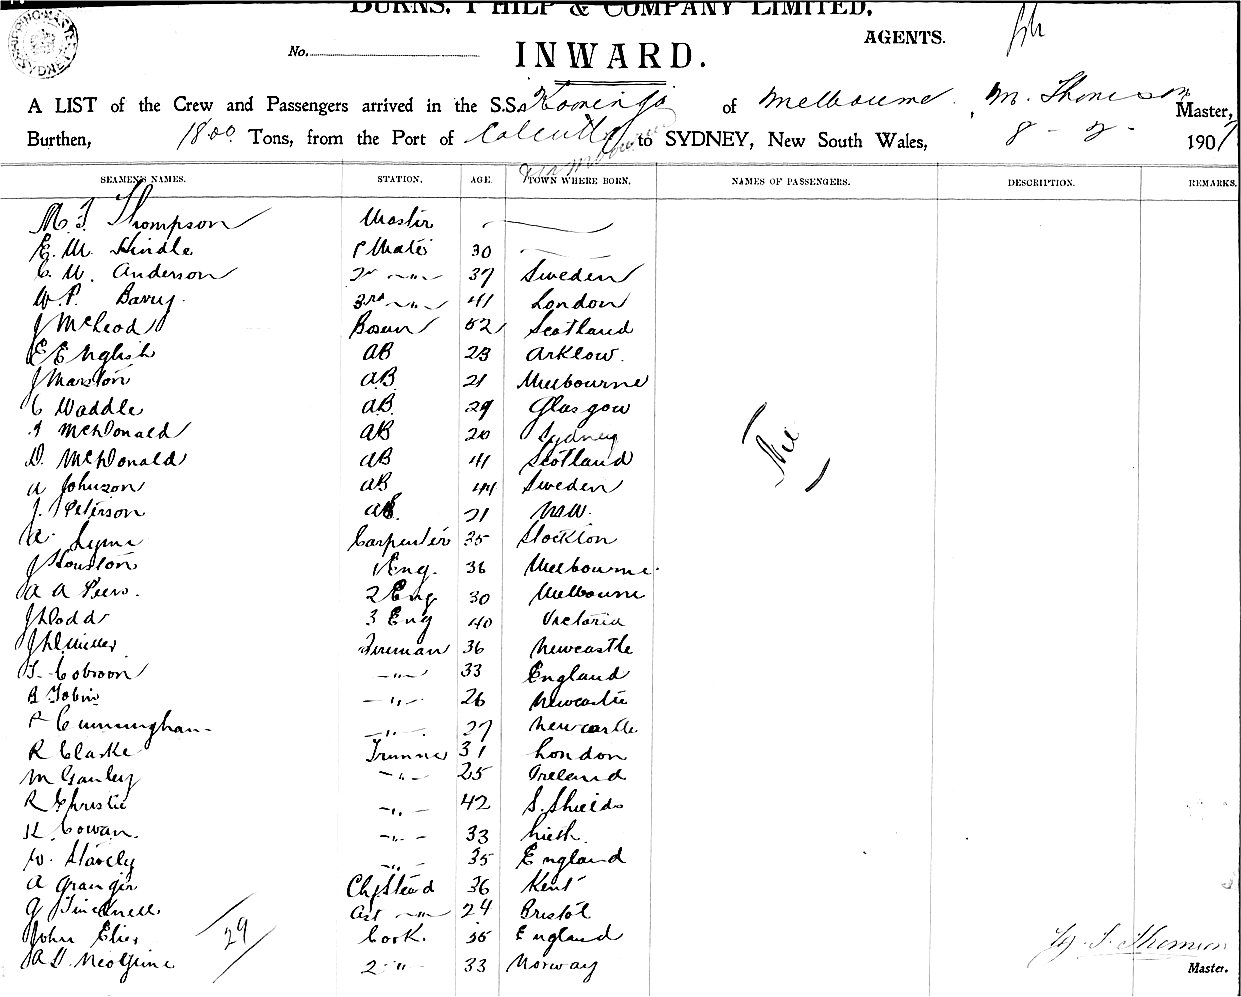 BURNS, PHILP & COMPANY LIMITED,
AGENTS.
No.
INWARD.
A LIST of the Crew and Passengers arrived in the S.S. of Melbourne, M. Master,
Burthen, 1800 Tons, from the Port of Calcutta to SYDNEY, New South Wales, 8 - 2 - 1907
SEAMEN'S NAMES. STATION. AGE. TOWN WHERE BORN. NAMES OF PASSENGERS. DESCRIPTION. REMARKS.
M. J. Thompson Master
E. M. Hindle 1 Mate 30
C. W. Anderson 2nd " 37 Sweden
W. P. Barry 3rd " 41 London
J McLeod Bosun 52 Scotland
E English AB 23 Arklow.
J Marston AB 21 Melbourne
C Waddle AB. 29 Glasgow
McDonald AB 20 Sydney
D. McDonald AB 41 Scotland
A Johnson AB 44 Sweden
J. Peterson AB. 21 NSW.
Carpenter 35 Stockton
J Houston 1 Eng. 36 Melbourne.
A A Peers. 2 Eng 30 Melbourne
J Dodds 3 Eng 40 Victoria
Fireman 36 Newcastle
" 33 England
Tobin " 26 Newcastle
Cunningham " 27 Newcastle
R Clarke Trimmer 31 London
M Ganley " 25 Ireland
R Christie " 42 S. Shields
Cowan. " 33 Leith.
W. Stavely " 35 England
A Granger Chf Stewd 36 Kent
G Tincknell Ast " 24 Bristol
John Cook. England
2 " 33 Norway
29
Nil
Master.